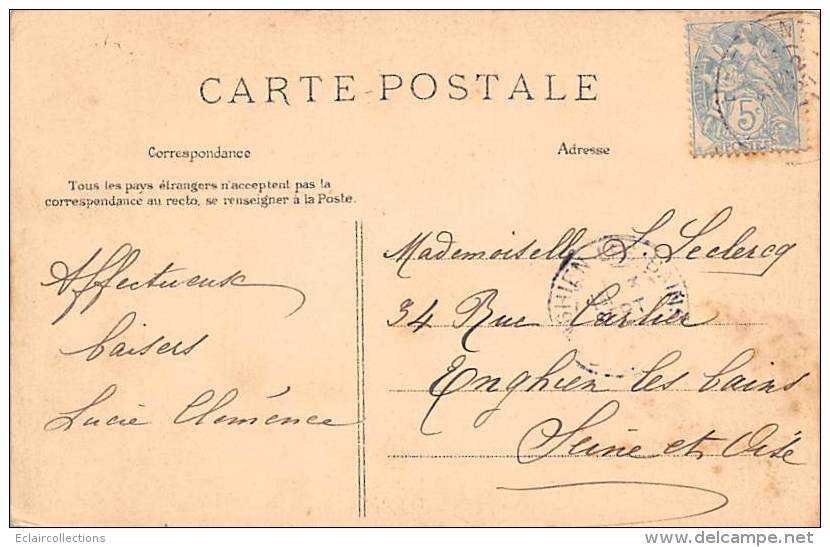 CARTE POSTALE
Correspondance
Adresse
Tous les pays étrangers n'acceptent pas la
correspondance au recto, se renseigner à la Poste.
5c
POSTES
Affectueux
baisers
Lucie Clémence
Mademoiselle L Leclercq
34 Rue Carlier
Enghien les bains
Seine et Oise
ENGHIEN
BAINS
Eclaircollections
www.delcampe.net